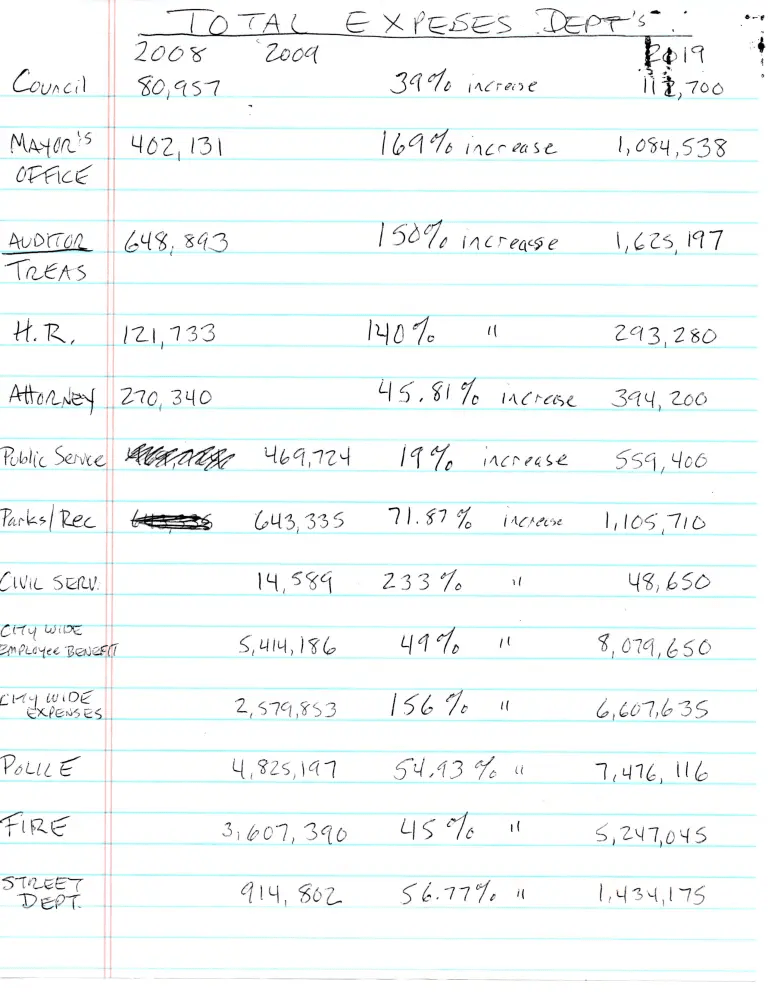 TOTAL EXPESES DEPT's.
2008 2009 2019
Council 80,957 39% increase 112,700
MAYOR'S 402,131 169% increase 1,084,538
OFFICE
AUDITOR 648,893 150% increase 1,625,197
TREAS
H.R. 121,733 140% " 293,280
Attorney 270,340 45.81% increase 394,200
Public Service 469,724 19% increase 559,400
Parks/Rec 643,335 71.87% increase 1,105,710
CIVIL SERV. 14,589 233% " 48,650
CITY WIDE
EMPLOYEE BENEFIT 5,414,186 49% " 8,079,650
CITY WIDE
EXPENSES 2,579,853 156% " 6,607,635
POLICE 4,825,197 54.93% " 7,476,116
FIRE 3,607,390 45% " 5,247,045
STREET
DEPT. 914,802 56.77% " 1,434,175